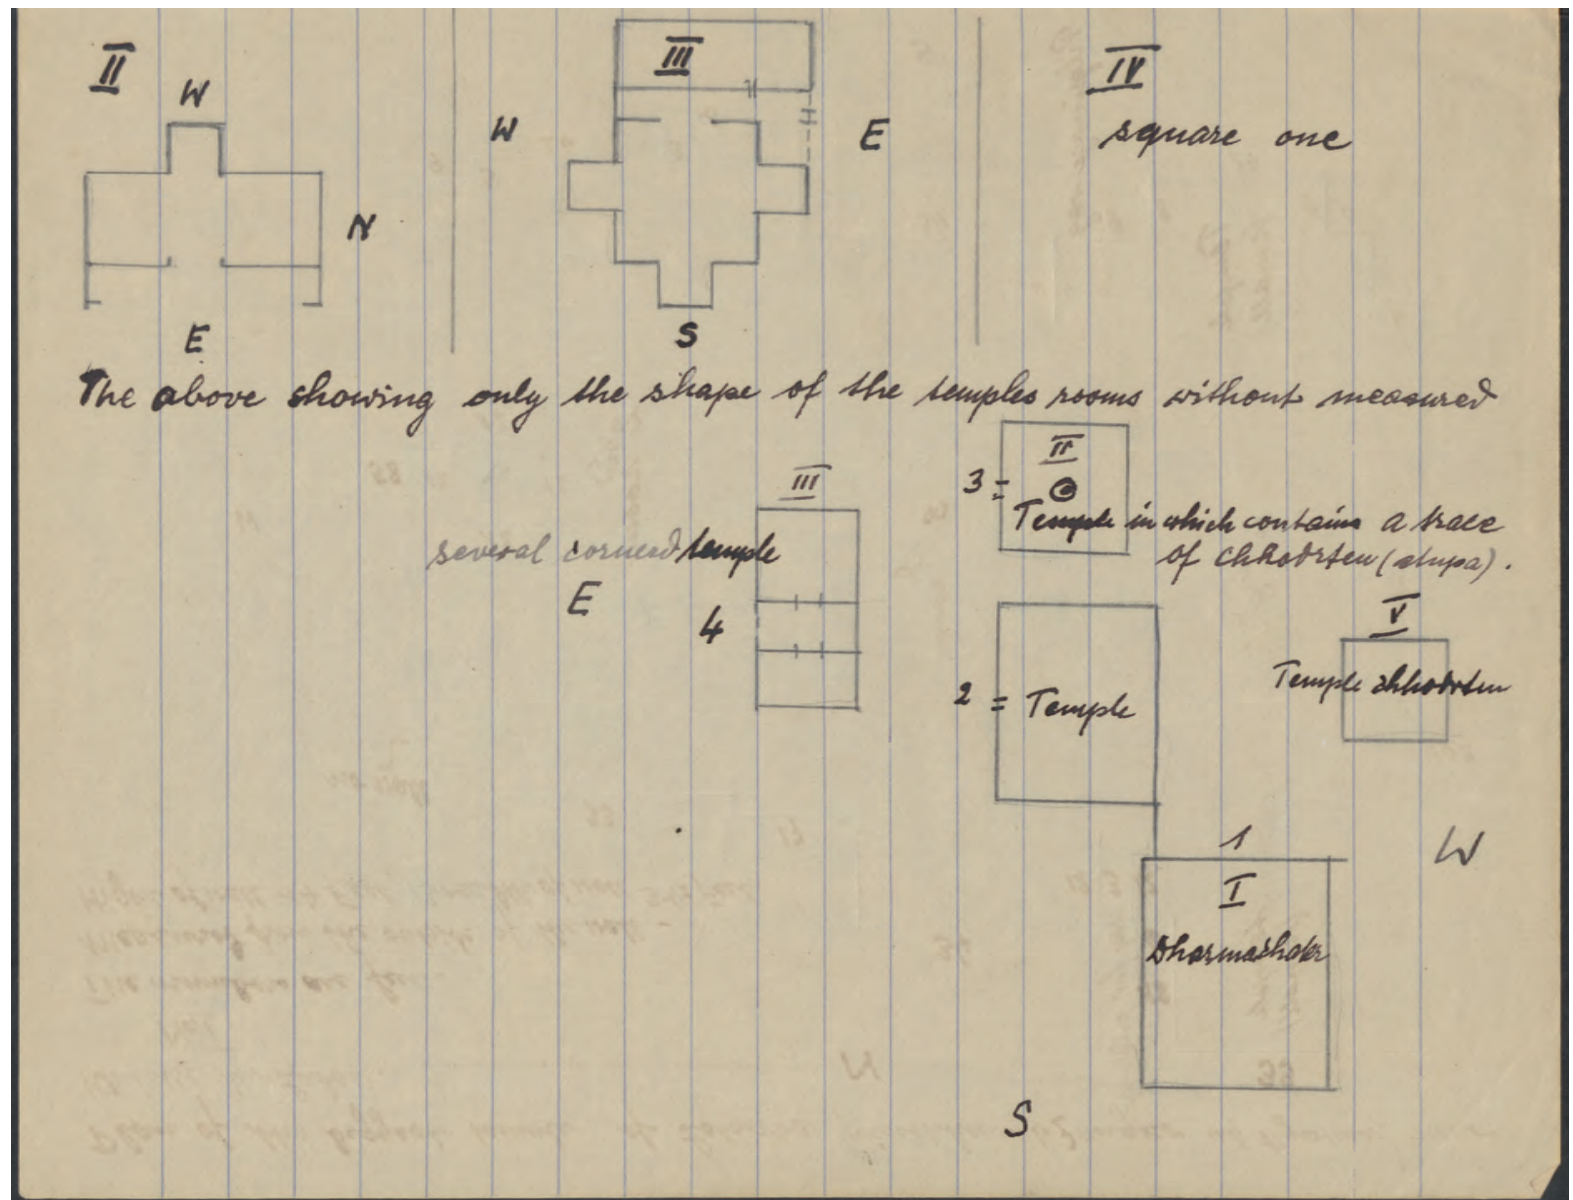 II
W
N
E
III
W
E
S
IV
square one
The above showing only the shape of the temples rooms without measured
III
several cornerd temple
E
4
II
3 =
Temple in which contains a trace
of chhodrten (stupa).
2 = Temple
V
Temple chhodrten
1
I
W
S